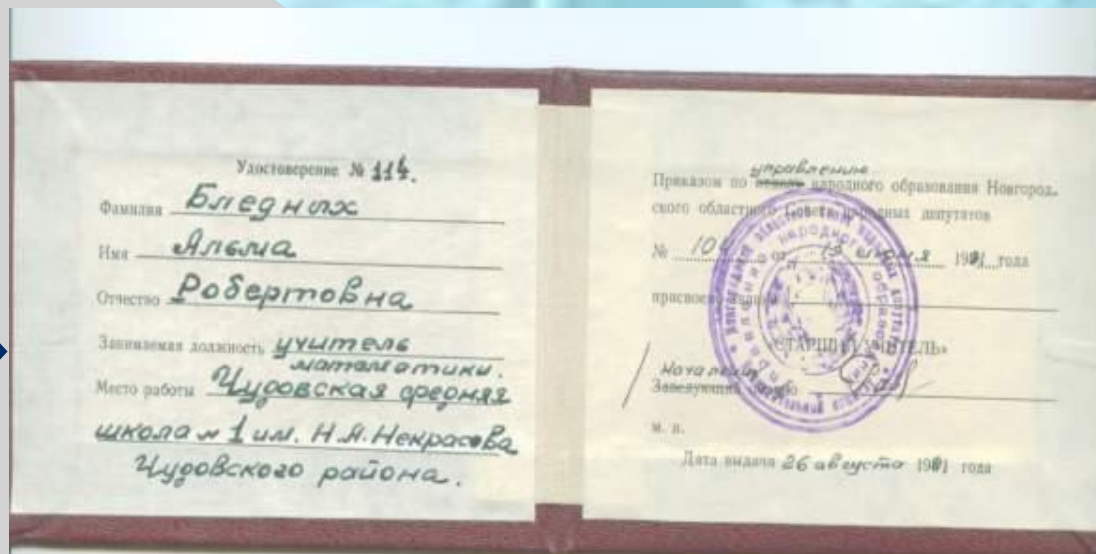 Удостоверение № 114.
Фамилия Бледных
Имя Альма
Отчество Робертовна
Занимаемая должность учитель
математики.
Место работы Чудовская средняя
школа № 1 им. Н.А. Некрасова
Чудовского района.
управлению
Приказом по народного образования Новгород-
ского областного Совета народных депутатов
№ от 1981 года
присвоено звание
«СТАРШИЙ УЧИТЕЛЬ»
Начальник
Заведующий
м. п.
Дата выдачи 26 августа 1981 года